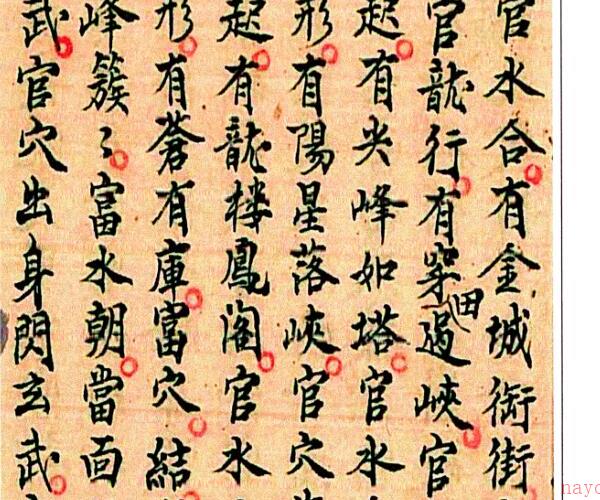 官水合有金城衙街
官龍行有穿田過峽官
起有尖峰如塔官水
形有陽星落峽官穴
起有龍楼鳳阁官水
形有蒼有庫富穴結
峰簇〻富水朝當面
武官穴出身閃玄武